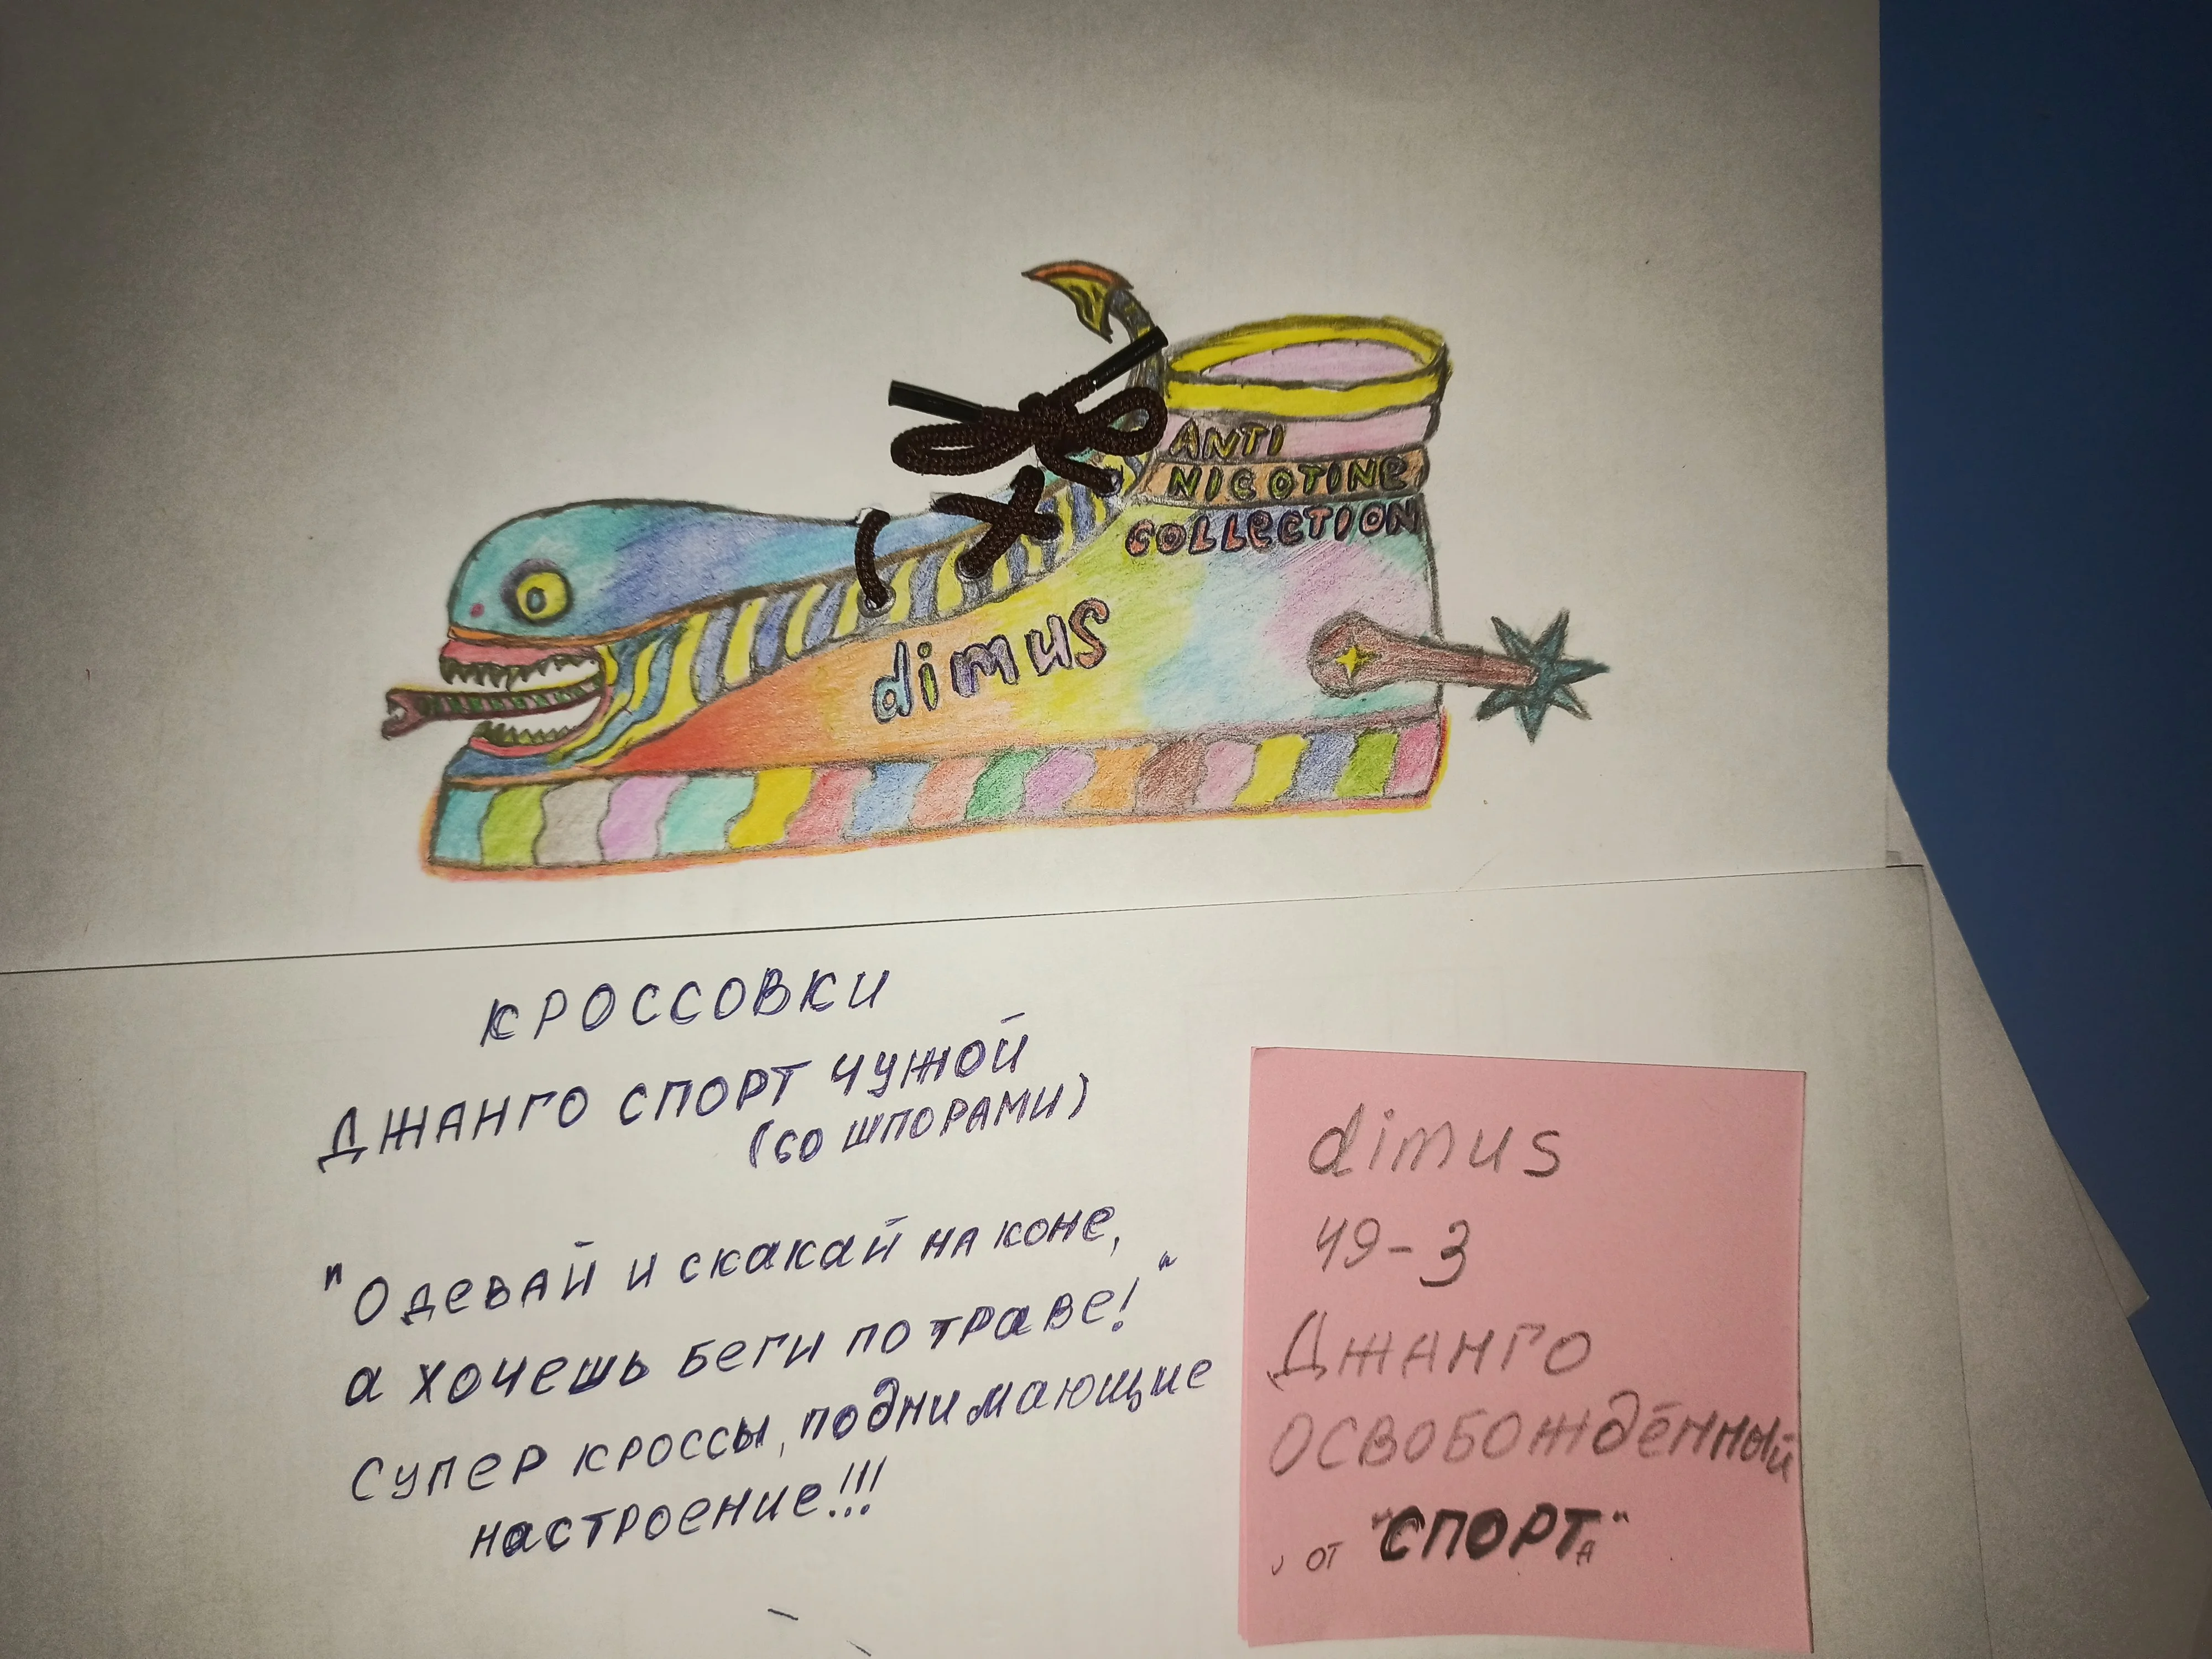 ANTI
NICOTINE
COLLECTION
dimus
КРОССОВКИ
ДЖАНГО СПОРТ ЧУЖОЙ
(СО ШПОРАМИ)
"Одевай и скакай на коне,
а хочешь беги по траве!"
Супер кроссы, поднимающие
настроение!!!
dimus
49-3
Джанго
освобождённый
от "СПОРТА"